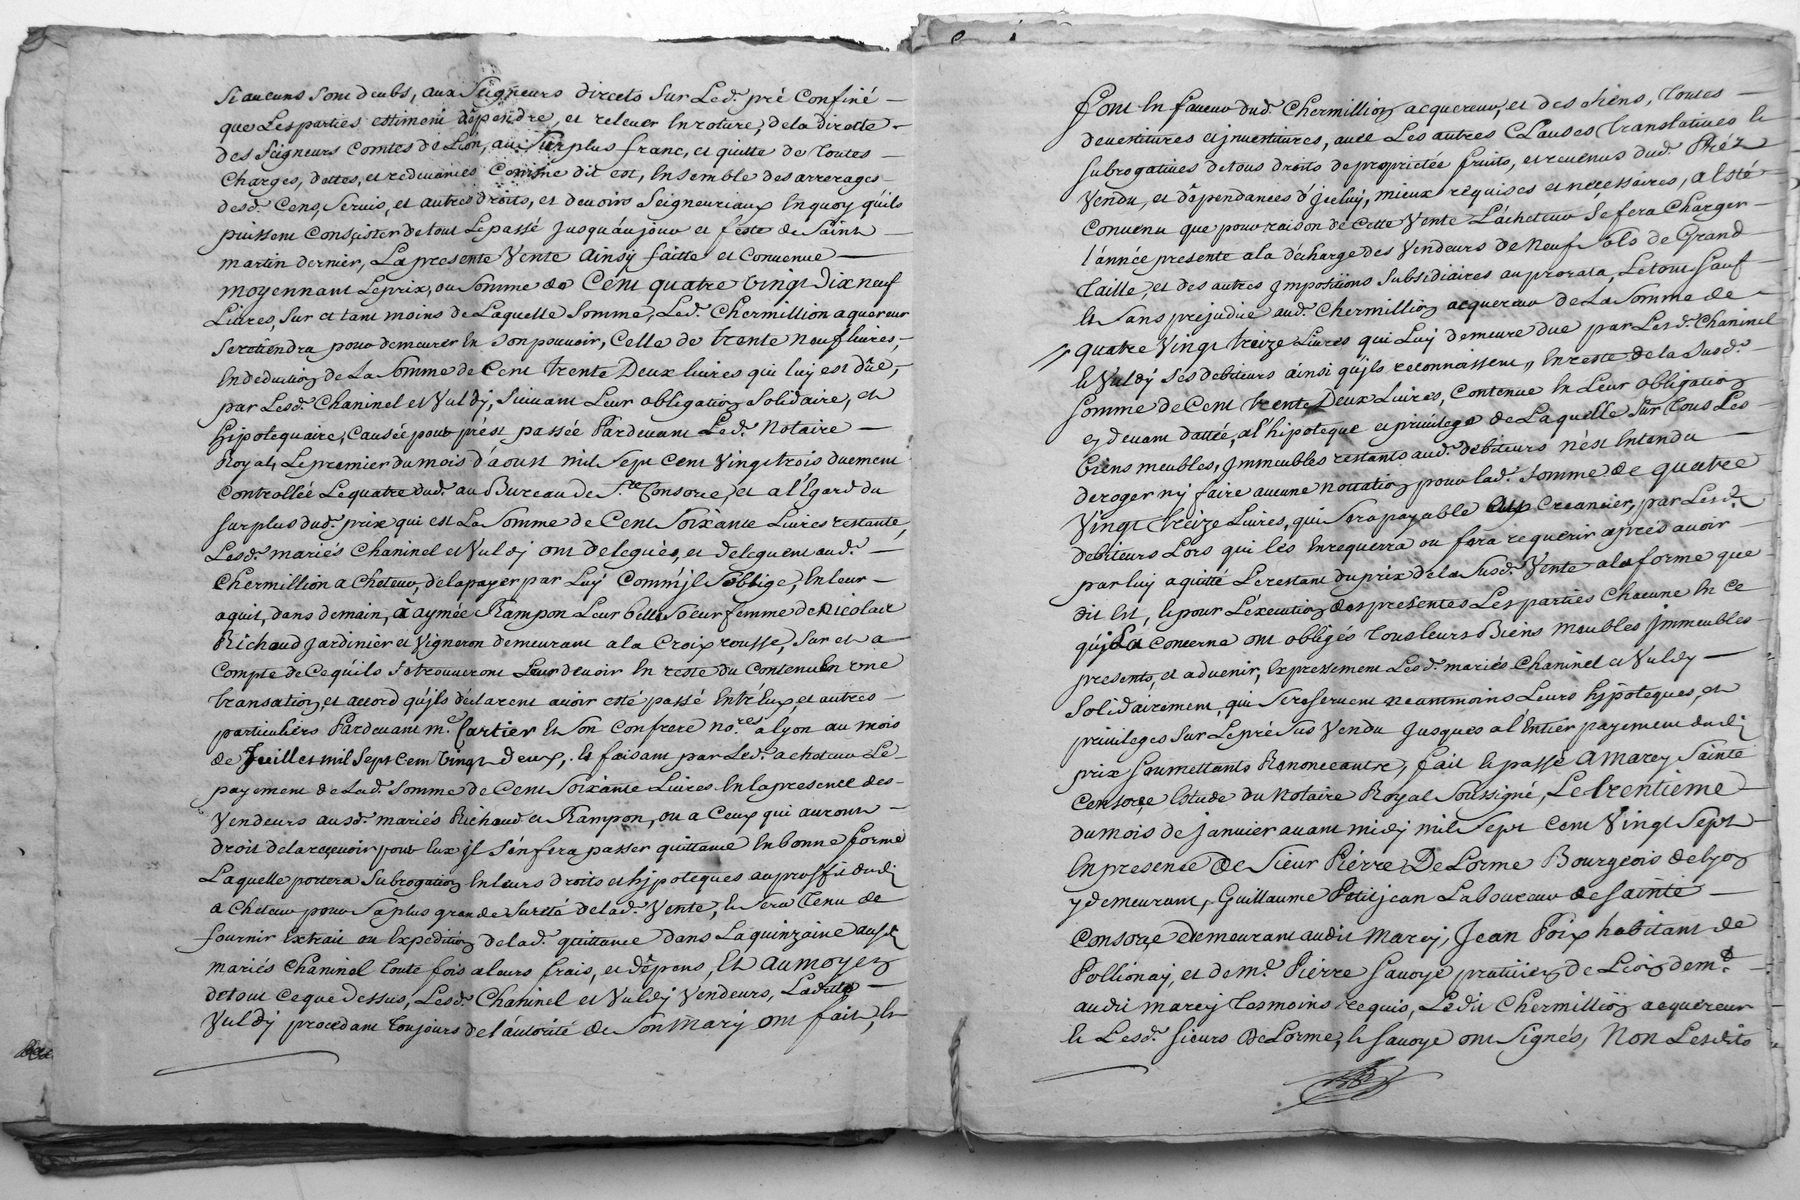 si aucuns sont deubs, aux Seigneurs directs sur Led. pré Confiné
que Les parties estiment dépendre, et relever En roture, de la directe
des Seigneurs Comtes de Lion, au Surplus franc, et quitte de toutes
Charges, dettes, et redevances Comme dit est, Ensemble des arrerages
desd. Cens, Servis, et autres droits, et devoirs Seigneuriaux En quoy qu'ils
puissent Consister de tout Le passé Jusqu'áujour et feste de Saint
martin dernier, La presente Vente Ainsy faitte et Convenue
moyennant Le prix, ou Somme de Cent quatre Vingt Dix neuf
Livres, Sur et tant moins de Laquelle Somme, Led. Chermillion aquereur
Se retiendra pour demeurer En Son pouvoir, Celle de trente neuf livres,
En deduction de La Somme de Cent trente Deux livres qui luy est dûe,
par Lesd. Chaninel et Vuldy, Suivant Leur obligation Solidaire, et
hipotequaire, Causée pour prést passée Pardevant Led. Notaire
Royal, Le premier du mois d'aoust mil Sept Cent Vingt trois duement
Controllée Le quatre dud. au Bureau de Ste. Consorce, et a l'Egard du
surplus dud. prix qui est La Somme de Cent Soixante Livres restante,
Lesd. mariés Chaninel et Vuldy ont delegués, et deleguent aud.
Chermillion acheteur, de la payer par Luy Comm'jl S'oblige, En leur
aquit, dans demain, à aymée Rampon Leur belle Soeur femme de Nicolas
Richaud Jardinier et Vigneron demeurant a la Croix rousse, Sur et a
Compte de Ce qu'ils Se trouveront Leur devoir En reste du Contenu En une
transation et accord qu'ils déclarent avoir esté passé Entr'Eux, et autres
particuliers Pardevant me. Cartier et Son Confrere nores. a Lyon au mois
de Juillet mil Sept Cent Vingt deux, Et faisant par Led. acheteur Le
payement de Lad. Somme de Cent Soixante Livres En la presence des
Vendeurs ausd. mariés Richaud et Rampon, ou a Ceux qui auront
droit de la reçevoir pour Eux jl S'en fera passer quittance En bonne forme
Laquelle portera Subrogation En leurs droits et hypoteques au proffit dud.
acheteur pour Sa plus grande Sureté de lad. Vente, Et Sera tenu de
fournir Extrait ou Expedition de lad. quittance dans La quinzaine ausd.
mariés Chaninel toute fois a leurs frais, et dépens, Et Au moyen
de tout Ce que Dessus, Lesd. Chaninel et Vuldy Vendeurs, Laditte
Vuldy procedant toujours de l'autorité de Son Mary ont fait, et
font En faveur dud. Chermillion acquereur, et des Siens, toutes
devestitures et jnvestitures, avec Les autres Clauses translatives Et
subrogatives de tous droits de proprietée fruits, et revenus dud. Préz
Vendu, et dépendances d'jceluy, mieux requises et necessaires, a Esté
Convenu que pour raison de Cette Vente L'acheteur Se fera Charger
l'année presente a la décharge des Vendeurs de Neuf Sols de Grand
taille, et des autres jmpositions Subsidiaires au prorata, Le tout Sauf
Et Sans prejudice aud. Chermillion acquereur de La Somme de
quatre Vingt treize Livres qui Luy demeure due par Lesd. Chaninel
Et Vuldy Ses debiteurs ainsi qu'ils reconnoissent, En reste de la Susd.
somme de Cent trente Deux Livres, Contenue En Leur obligation
Cy devant dattée, a l'hipoteque et privilege de Laquelle Sur tous Les
biens meubles, jmmeubles restants aud. debiteurs n'est Entendu
deroger ny faire aucune Novation pour lad. Somme de quatre
Vingt treize Livres, qui Sera payable Creancier, par Lesd.
debiteurs Lors qui les En requerra ou fera requerir apred avoir
par luy aquitté Le restant du prix de la Susd. Vente a la forme que
dit Est, Et pour L'éxecution des presentes Les parties Chacune En ce
qui La Concerne ont obligés tous leurs Biens Meubles jmmeubles
presents, et advenir, Expressement Lesd. mariés Chaninel et Vuldy
Solidairement, qui Se reservent neantmoins Leurs hypoteques, et
privileges Sur Le pré Sus Vendu Jusques a l'Entier payement dud.
prix Soumettants Renonceantz, fait Et passé A Marcy Sainte
Censorçe Estude du Notaire Royal Soussigné, Le trentieme
du mois de Janvier avant midy mil Sept Cent Vingt Sept
En presence de Sieur Piérre DeLorme Bourgeois de Lyon
y demeurant, Guillaume Petitjean Laboureur de Sainte
Consorçe demeurant audit Marcy, Jean Poix habitant de
Pollionay, et de me. Piérre Savoye praticien de Lion demt.
audit marcy tesmoins requis, Ledit Chermillion acquereur
Et Lesd. Sieurs DeLorme, Et Savoye ont Signés, Non Lesdits